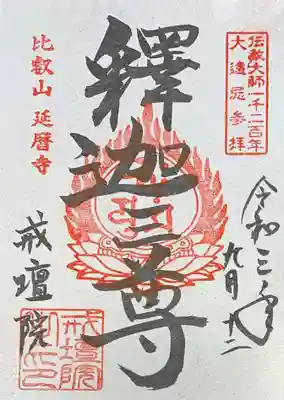 伝教大師一千二百年
大遠忌参拝
令和三年
九月
釋迦三尊
比叡山 延暦寺
戒壇院
戒壇院